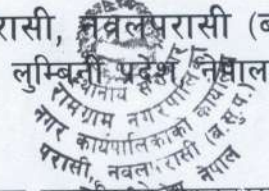 रासी, नवलपरासी (ब
लुम्बिनी प्रदेश, नेपाल
स्थानीय सरकार
रामग्राम नगरपालिका
नगर कार्यपालिकाको कार्यालय
परासी, नवलपरासी (ब.सु.प.)
नेपाल